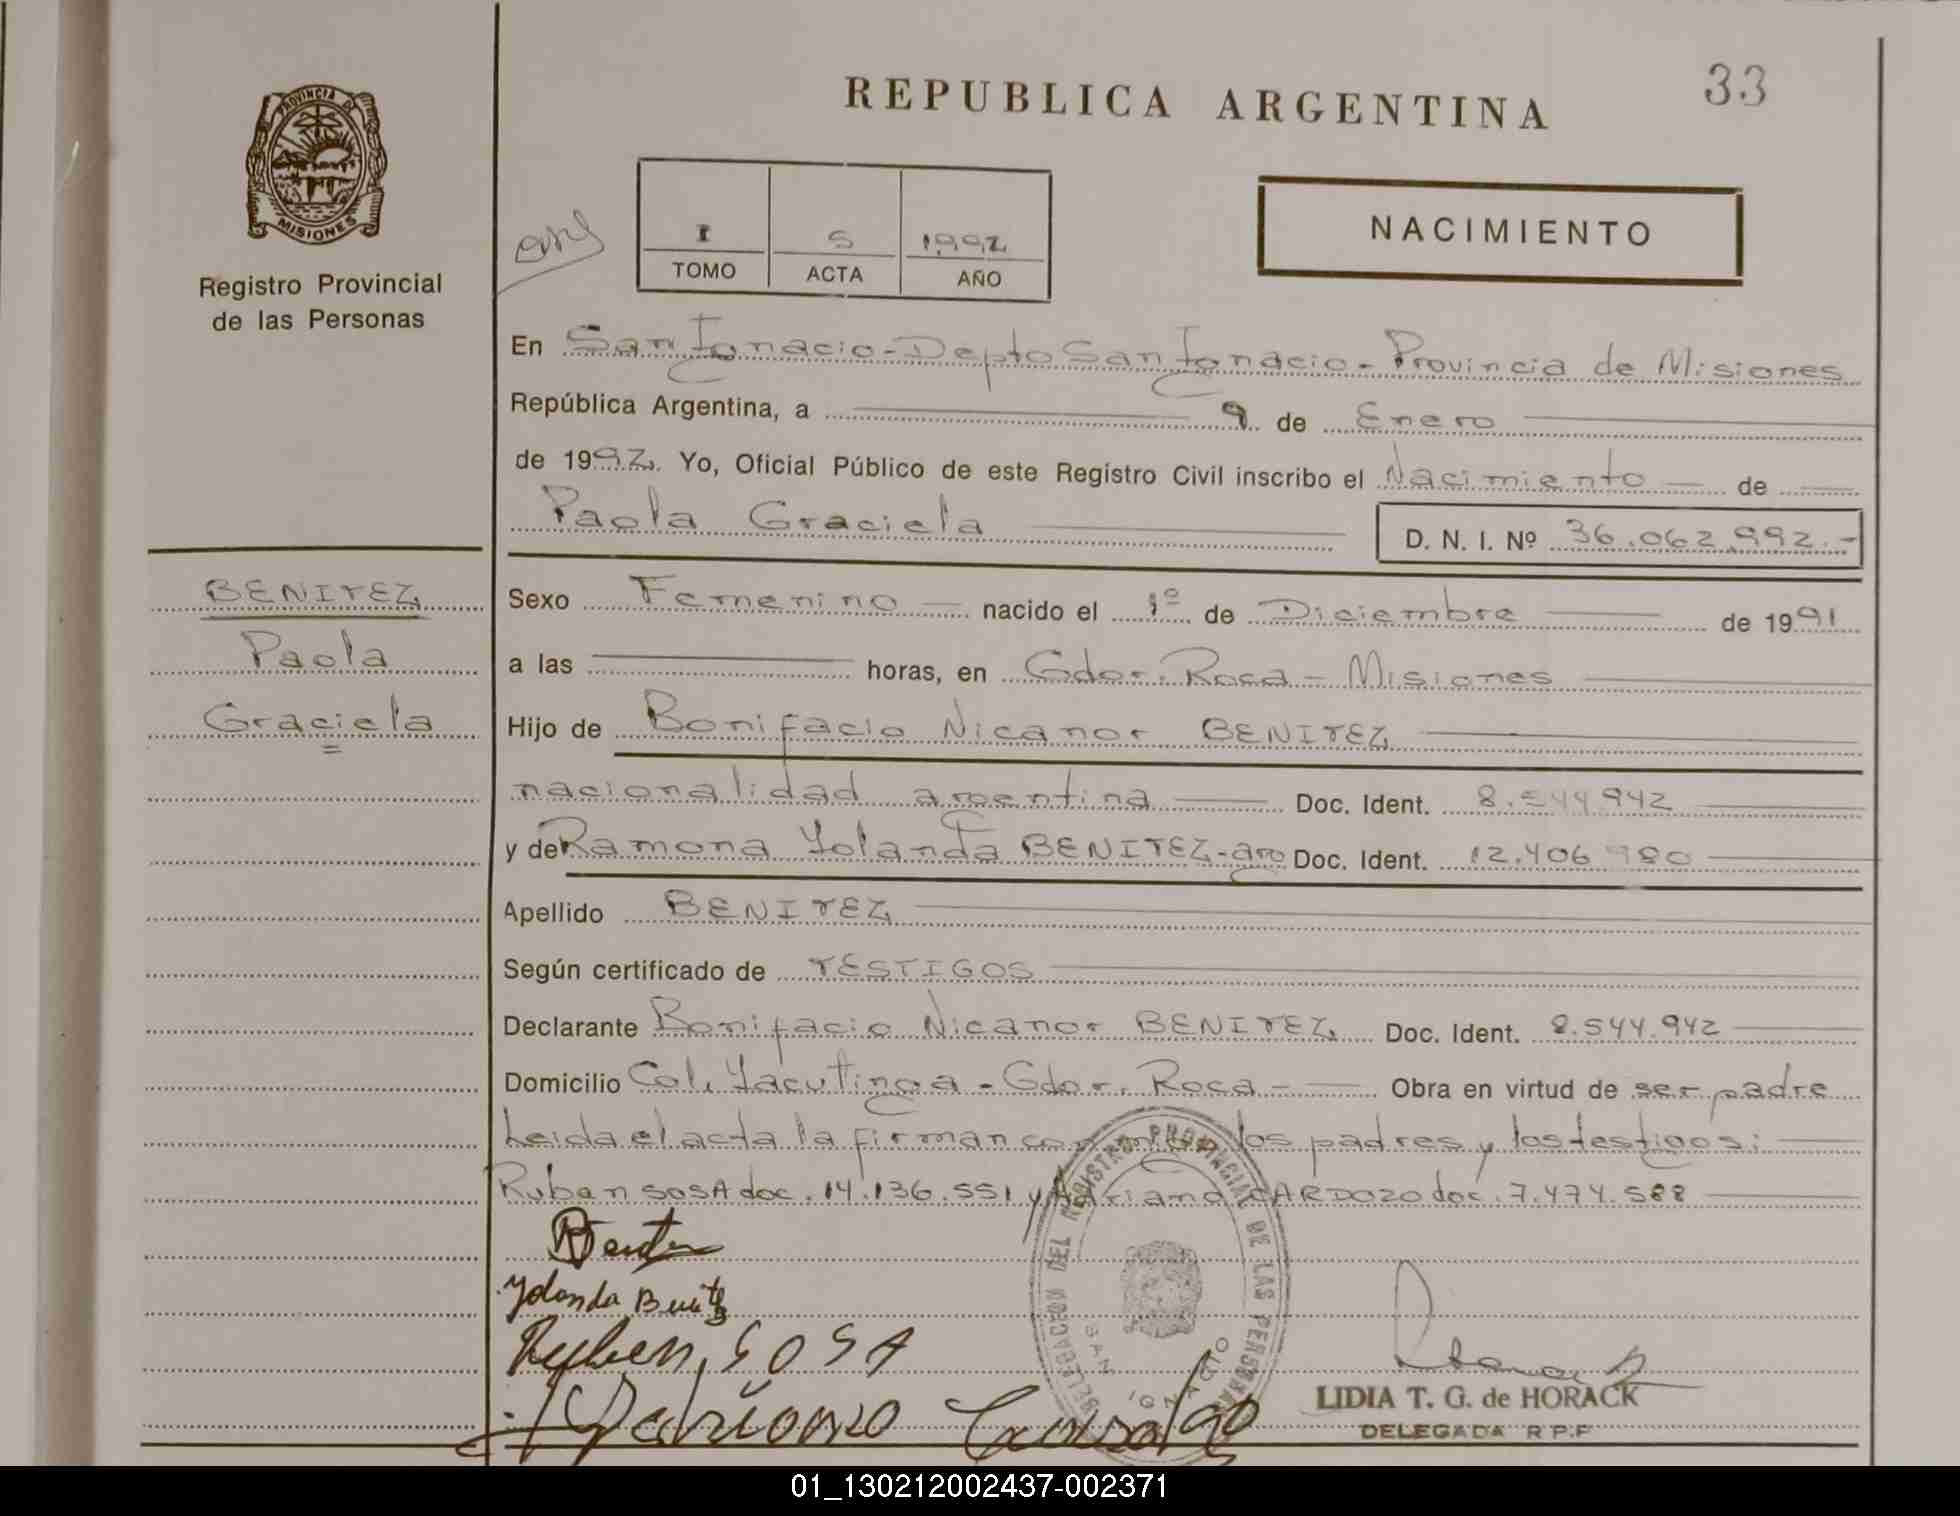 33
REPUBLICA ARGENTINA
PROVINCIA DE
MISIONES
Registro Provincial
de las Personas
NACIMIENTO
I 5 1992
TOMO ACTA AÑO
En San Ignacio - Depto San Ignacio - Provincia de Misiones
República Argentina, a 9 de Enero
de 1992. Yo, Oficial Público de este Registro Civil inscribo el Nacimiento de
Paola Graciela
D. N. I. Nº 36.062.992.-
BENITEZ
Paola
Graciela
Sexo Femenino nacido el 1º de Diciembre de 1991
a las horas, en Gdor. Roca - Misiones
Hijo de Bonifacio Nicanor BENITEZ
nacionalidad argentina Doc. Ident. 8.544.942
y de Ramona Yolanda BENITEZ - arg Doc. Ident. 12.406.980
Apellido BENITEZ
Según certificado de TESTIGOS
Declarante Bonifacio Nicanor BENITEZ Doc. Ident. 8.544.942
Domicilio Col. Yacutinga - Gdor. Roca - Obra en virtud de ser padre
Leida el acta la firman conmigo los padres y los testigos:
Ruben SOSA doc. 14.136.551 y Adriano CARDOZO doc. 7.474.588
Yolanda Benitez
Ruben, SOSA
DELEGACION DEL REGISTRO PROVINCIAL DE LAS PERSONAS
SAN IGNACIO
LIDIA T. G. de HORACK
DELEGADA R.P.P
01_130212002437-002371